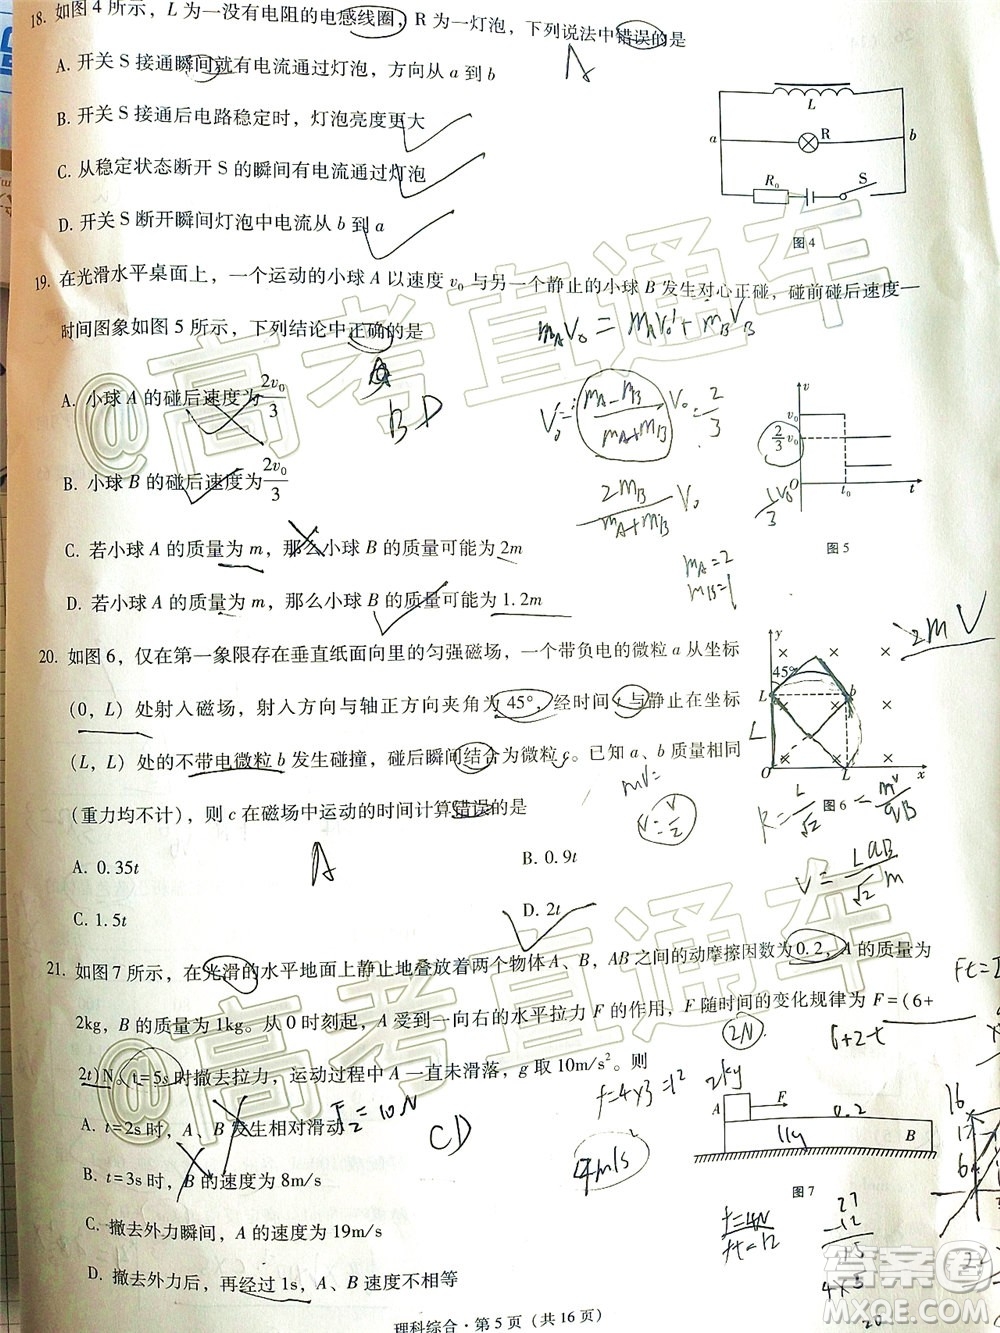 18. 如图 4 所示，L 为一没有电阻的电感线圈，R 为一灯泡，下列说法中错误的是
A
A. 开关 S 接通瞬间就有电流通过灯泡，方向从 a 到 b
B. 开关 S 接通后电路稳定时，灯泡亮度更大
C. 从稳定状态断开 S 的瞬间有电流通过灯泡
D. 开关 S 断开瞬间灯泡中电流从 b 到 a
L
a
R
b
R₀
S
图 4
19. 在光滑水平桌面上，一个运动的小球 A 以速度 v₀ 与另一个静止的小球 B 发生对心正碰，碰前碰后速度—
时间图象如图 5 所示，下列结论中正确的是
BD
A. 小球 A 的碰后速度为 2v₀/3
B. 小球 B 的碰后速度为 2v₀/3
C. 若小球 A 的质量为 m，那么小球 B 的质量可能为 2m
D. 若小球 A 的质量为 m，那么小球 B 的质量可能为 1.2m
v
v₀
2/3 v₀
1/3 v₀
O
t₀
t
图 5
mA=2
mB=1
2mV
20. 如图 6，仅在第一象限存在垂直纸面向里的匀强磁场，一个带负电的微粒 a 从坐标
(0, L) 处射入磁场，射入方向与轴正方向夹角为 45°，经时间 t 与静止在坐标
(L, L) 处的不带电微粒 b 发生碰撞，碰后瞬间结合为微粒 c。已知 a、b 质量相同
（重力均不计），则 c 在磁场中运动的时间计算错误的是
A
A. 0.35t
B. 0.9t
C. 1.5t
D. 2t
y
45°
L
b
L
O
L
x
图 6
21. 如图 7 所示，在光滑的水平地面上静止地叠放着两个物体 A、B，AB 之间的动摩擦因数为 0.2，A 的质量为
2kg，B 的质量为 1kg。从 0 时刻起，A 受到一向右的水平拉力 F 的作用，F 随时间的变化规律为 F=(6+
2t) N。t=5s 时撤去拉力，运动过程中 A 一直未滑落，g 取 10m/s²。则
CD
A. t=2s 时，A、B 发生相对滑动
B. t=3s 时，B 的速度为 8m/s
C. 撤去外力瞬间，A 的速度为 19m/s
D. 撤去外力后，再经过 1s，A、B 速度不相等
2N
6+2t
f=4×3=12
4m/s
2kg
A
F
0.2
B
图 7
f=4N
ft=12
27
-12
15
4×5
20
理科综合·第 5 页（共 16 页）
@高考直通车
@高考直通车
答案圈
MXQE.COM